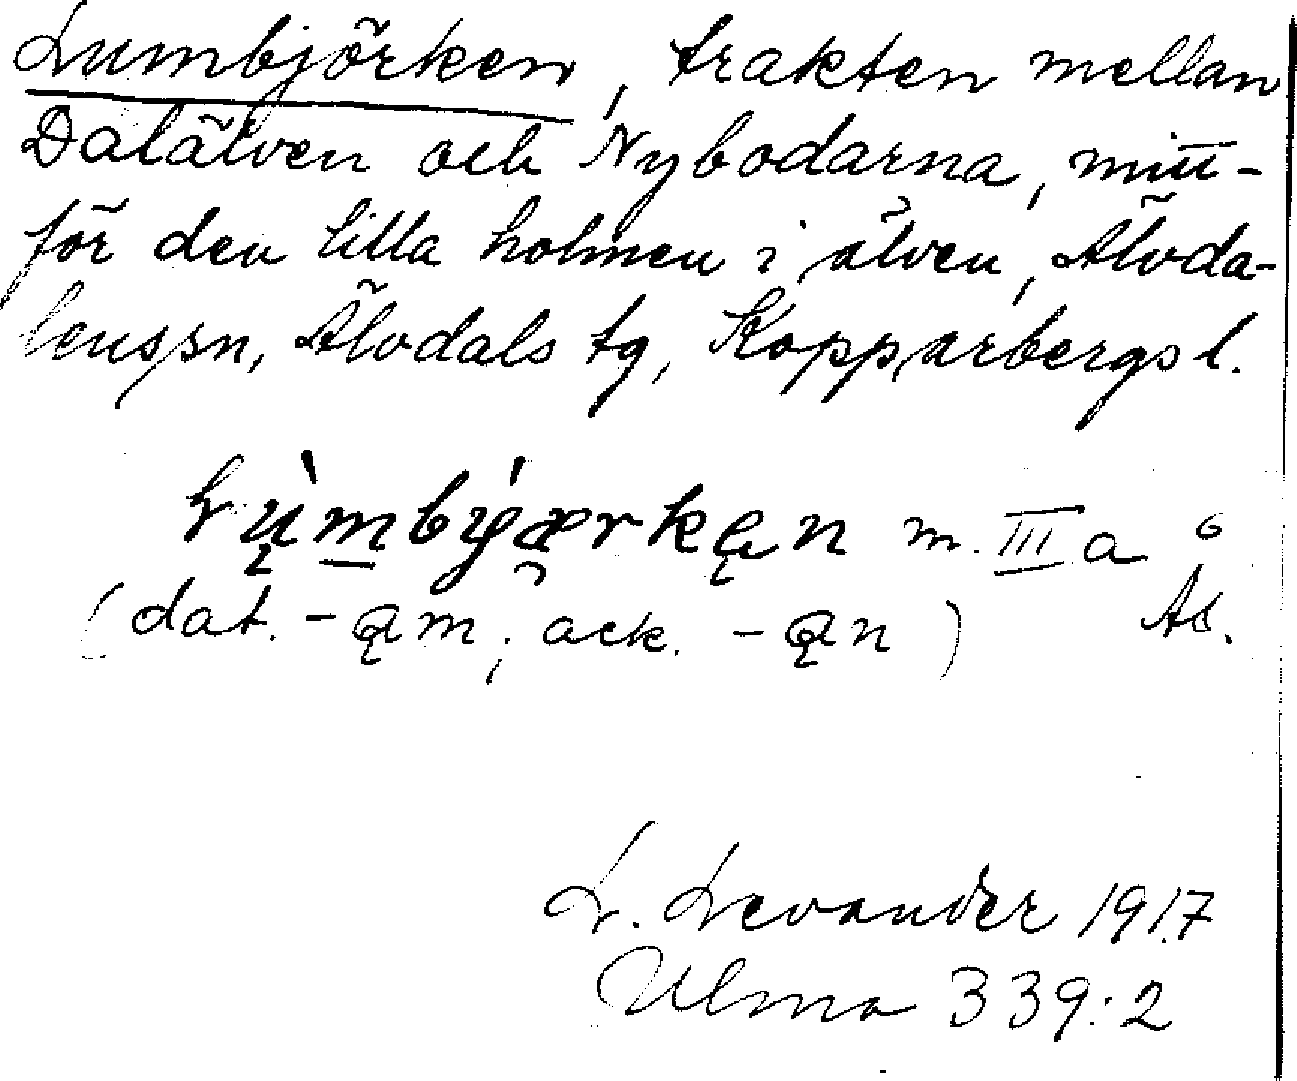 Lumbjörken, trakten mellan
Dalälven och Nybodarna, mitt-
för den lilla holmen i älven, Älvda-
lens sn, Älvdals tg, Kopparbergs l.
m. III a
(dat. -ąm; ack. -ąn) Åb.
L. Levander 1917
Ulma 339:2